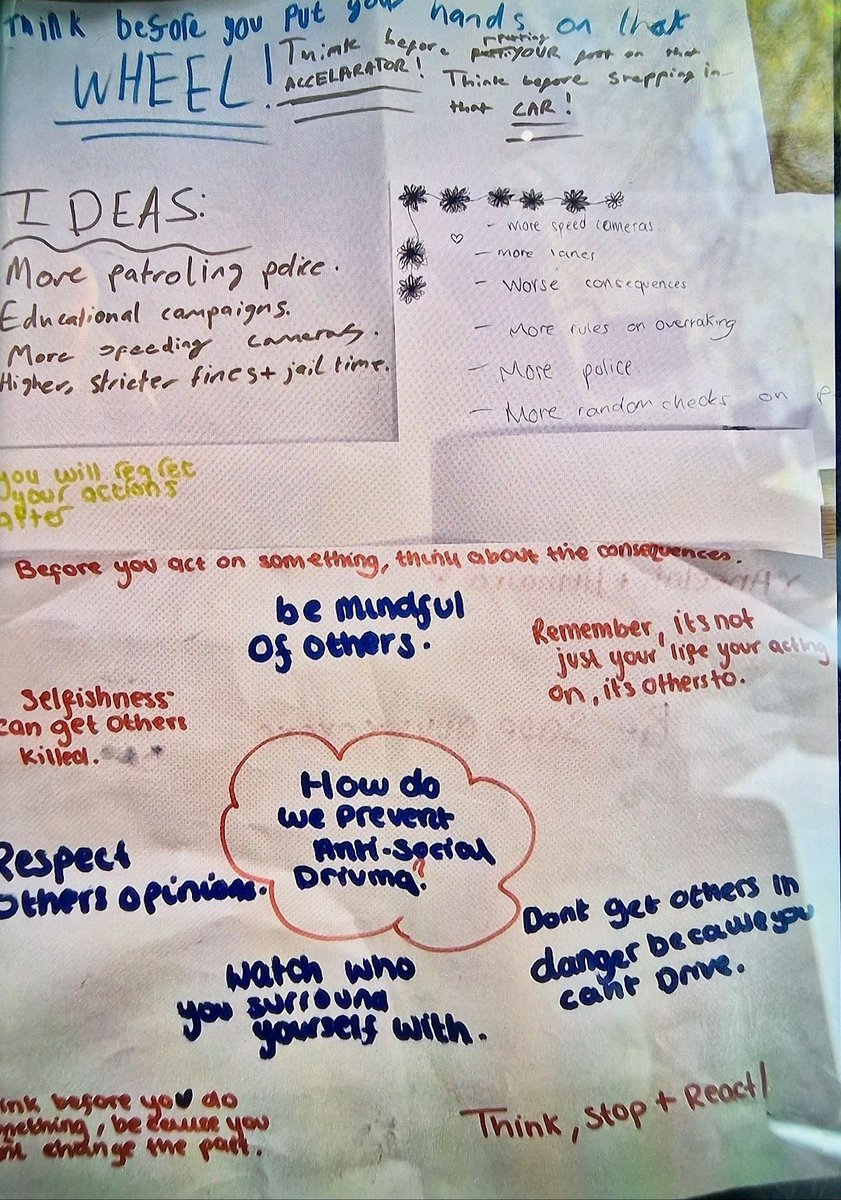 Think before you put your hands on that
WHEEL!
Think before putting YOUR foot on that
ACCELARATOR! Think before stepping in
that CAR!
IDEAS:
More patroling police.
Educational campaigns.
More speeding cameras.
Higher, stricter fines + jail time.
- More speed cameras
- more lanes
- Worse consequences
- More rules on overraking
- More police
- More random checks on
you will regret
your actions
after
Before you act on something, think about the consequences.
be mindful
of others.
Remember, its not
just your life your acting
on, it's others to.
Selfishness
can get others
killed.
How do
we prevent
Anti-Social
Driving?
Respect
others opinions.
Dont get others in
danger because you
cant Drive.
Watch who
you surround
yourself with.
before you do
because you
change the past.
Think, Stop + React!